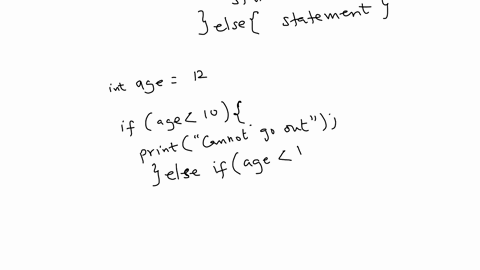 }else{ statement }
int age = 12
if (age < 10){
print("Cannot go out");
}else if(age < 1